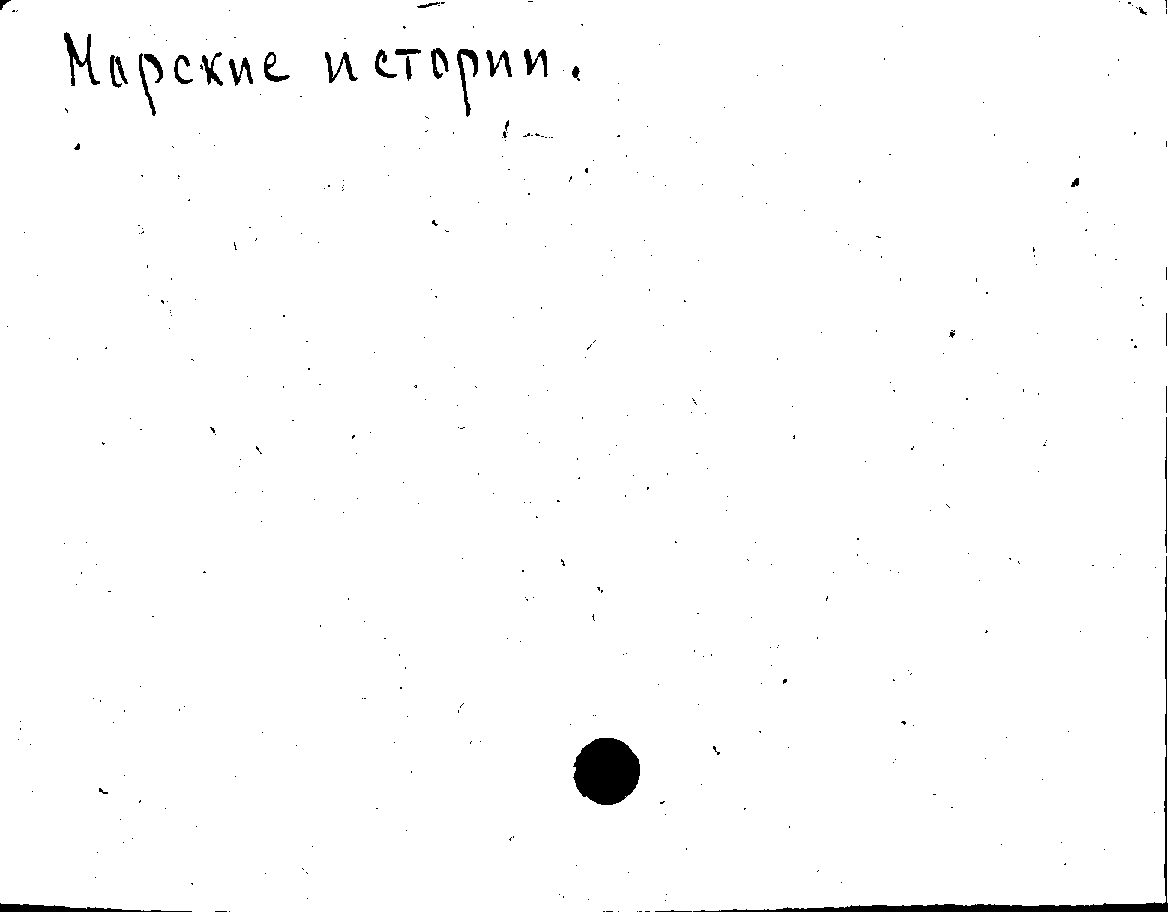 Морские истории.